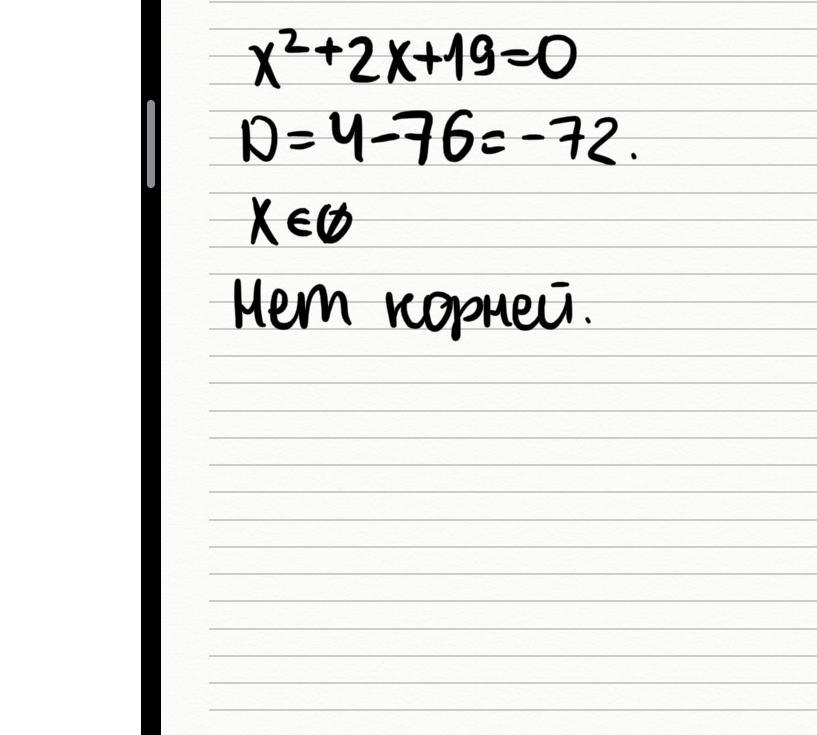 x²+2x+19=0
D=4-76=-72.
x∈∅
Нет корней.